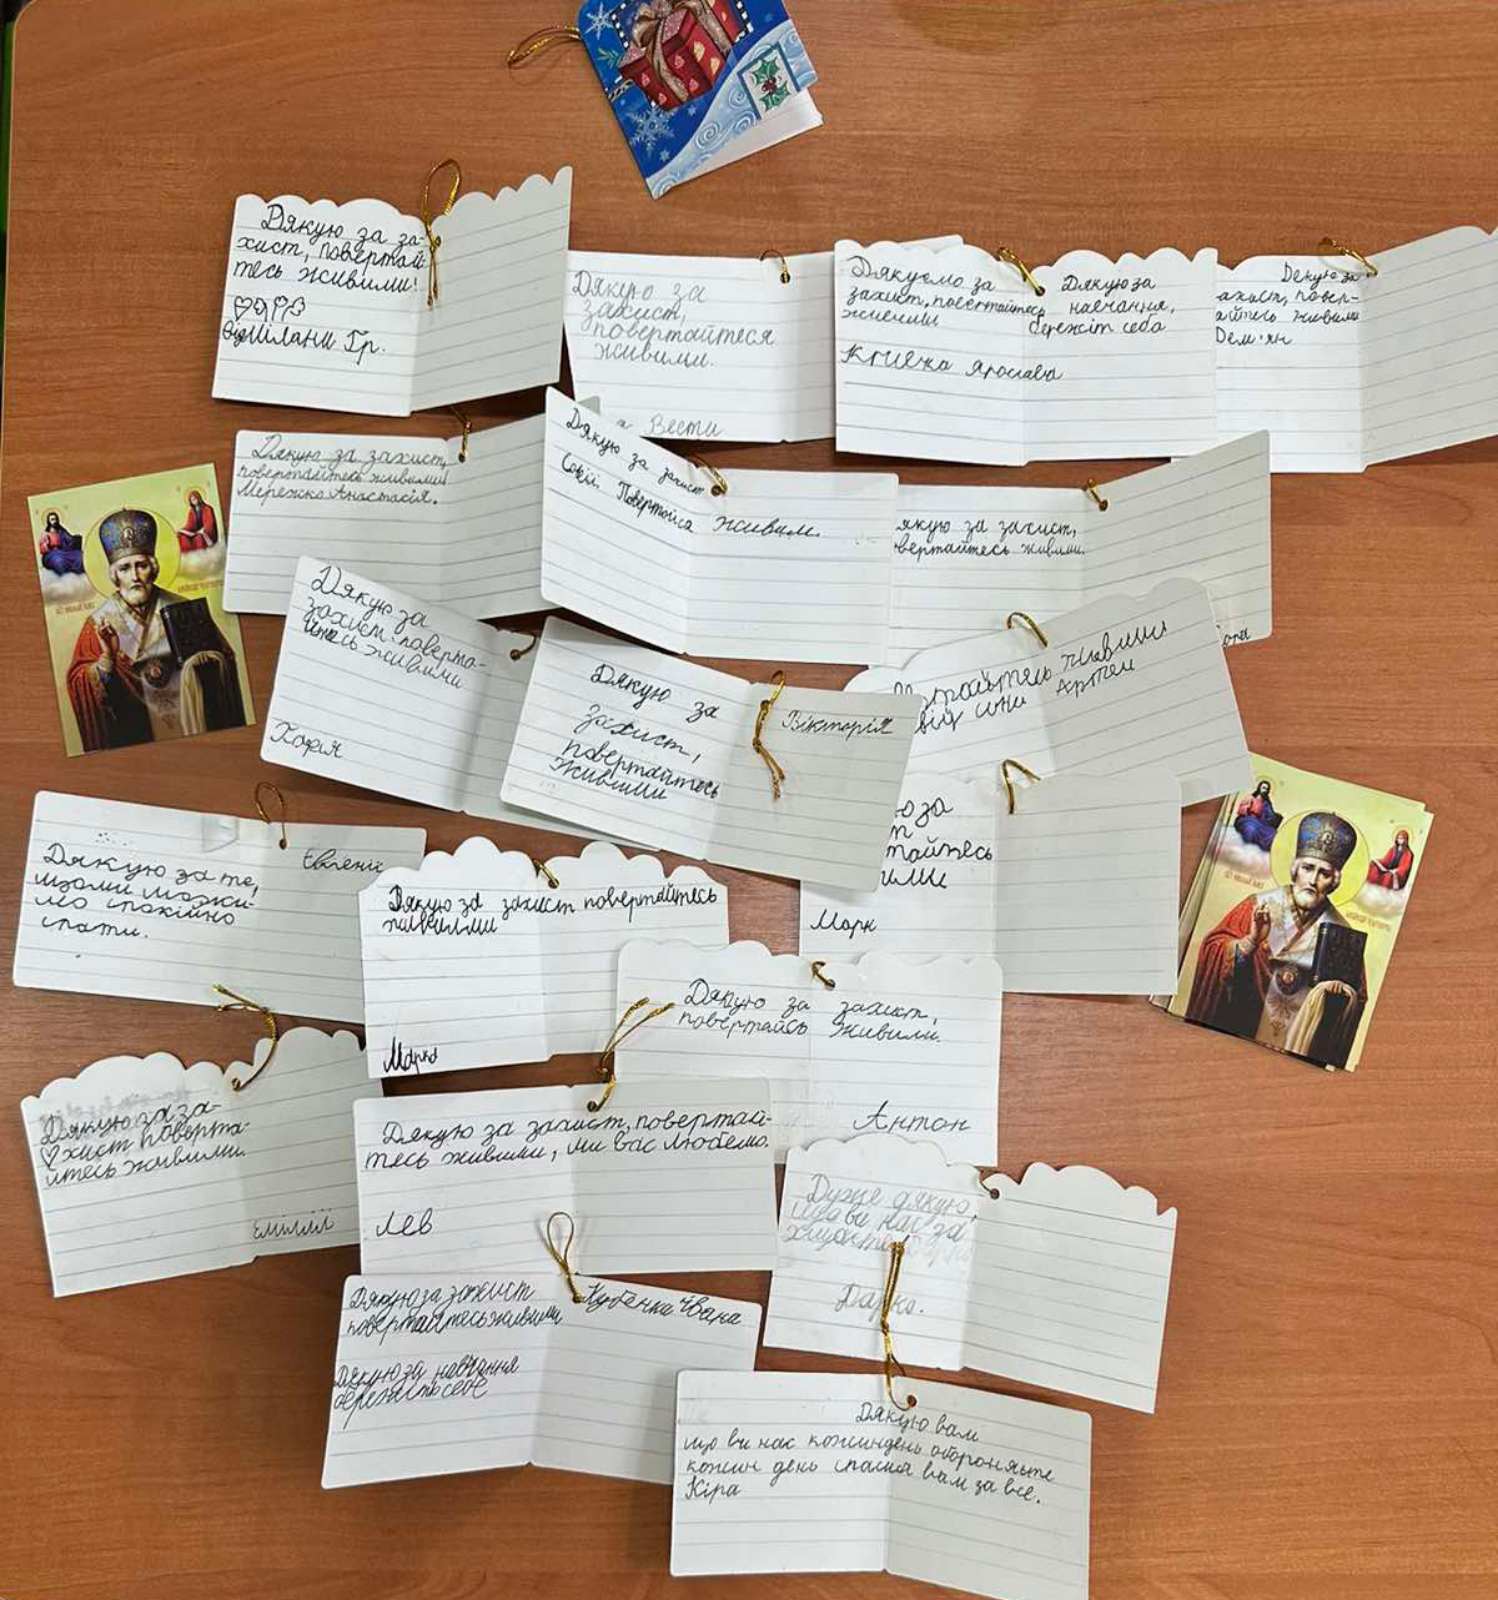 Дякую за за-
хист, повертай-
тесь живими!
Від Мілани Гр.
Дякую за
захист,
повертайтеся
живими.
Вести
Дякуємо за
захист, повертайтесь
живими
Ярослава
Дякую за
навчання,
бережіт себа
Декую за
ахист, повер-
айтесь живими
Дем'ян
Дякую за захист,
повертайтесь живими
Мережко Анастасія.
Дякую за захист
Повертайся живим.
якую за захист,
вертайтесь живими.
Дякую за
захист. поверта-
йтесь живими
Софія
Дякую за
захист,
повертайтесь
живими
Вікторія
живими
від
Артем
ю за
т
тайтесь
ими
Марк
Дякую за те,
мо спокійно
спати.
Євгенії
Дякую за захист повертайтесь
живими
Марко
Дякую за захист,
повертайсь живими.
Антон
Дякую за за-
хист поверта-
йтесь живими.
Емілії
Дякую за захист, повертай-
тесь живими, ми вас любемо.
Лев
Дуже дякую,
що ви нас за
Дарко.
Дякую за захист
повертайтесь живими
Кубенка Івана
Дякую за навчання
бережить себе
Дякую вам
що ви нас кожиндень обороняєте
кожин день спасиа вам за все.
Кіра